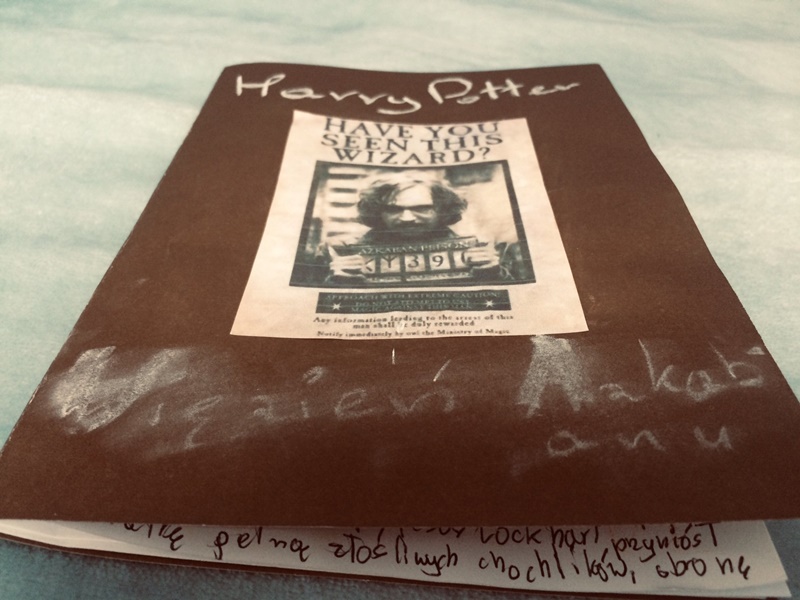 Harry Potter
HAVE YOU
SEEN THIS
WIZARD?
AZKABAN PRISON
390
APPROACH WITH EXTREME CAUTION!
DO NOT ATTEMPT TO USE
MAGIC AGAINST THIS MAN!
Any information leading to the arrest of this
man shall be duly rewarded
Notify immediately by owl the Ministry of Magic
Więzień Azkab
anu
pełną złośliwych chochlików,
przyniósł